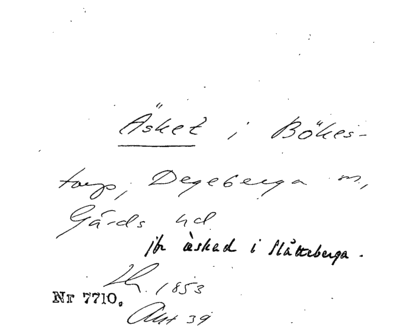 Äsket i Bökes-
torp, Degeberga sn,
Gärds hd
jfr äskad i Slätteberga.
1853
Nr 7710.
Akt 39